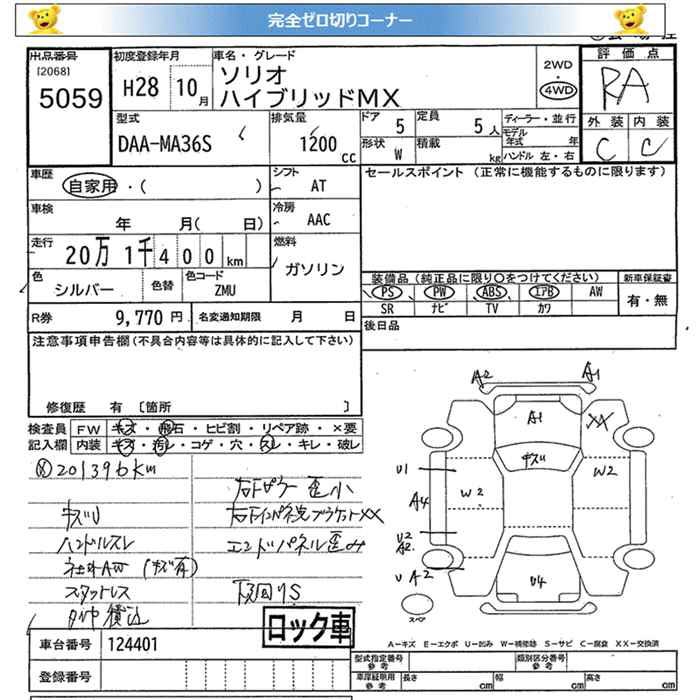 完全ゼロ切りコーナー
出品番号
[2068]
5059
初度登録年月
H28 10月
車名・グレード
ソリオ
ハイブリッドMX
2WD
4WD
評価点
RA
外装 内装
C C
型式
DAA-MA36S
排気量
1200 cc
ドア 5
定員 5人
形状 W
積載 kg
ディーラー・並行
モデル年式 年
ハンドル 左・右
車歴
自家用・( )
シフト
AT
車検
年 月( 日)
冷房
AAC
走行
20万 1千400km
燃料
ガソリン
色
シルバー
色替
色コード
ZMU
R券 9,770円
名変通知期限 月 日
セールスポイント (正常に機能するものに限ります)
装備品(純正品に限り○をつけてください)
新車保証書
PS PW ABS エアB AW
有・無
SR ナビ TV カワ
後日品
注意事項申告欄(不具合内容等は具体的に記入して下さい)
修復歴 有 [箇所 ]
検査員記入欄
FW キズ・飛石・ヒビ割・リペア跡・×要
内装 キズ・汚レ・コゲ・穴・スレ・キレ・破レ
201396km
キズU
ハンドルスレ
社外AW (キズ有)
スタットレス
タイヤ積込
右Fピラー歪小
エンドパネル歪み
下回りS
A2 A1
A1
XX
キズU
U1
A4
W2
W2
U2
A2
U A2
U4
スペア
ロック車
車台番号 124401
登録番号
A-キズ E-エクボ U-凹み W-補修跡 S-サビ C-腐食 XX-交換済
型式指定番号 参考
類別区分番号 参考
車庫証明用 参考
長さ cm
幅 cm
高さ cm